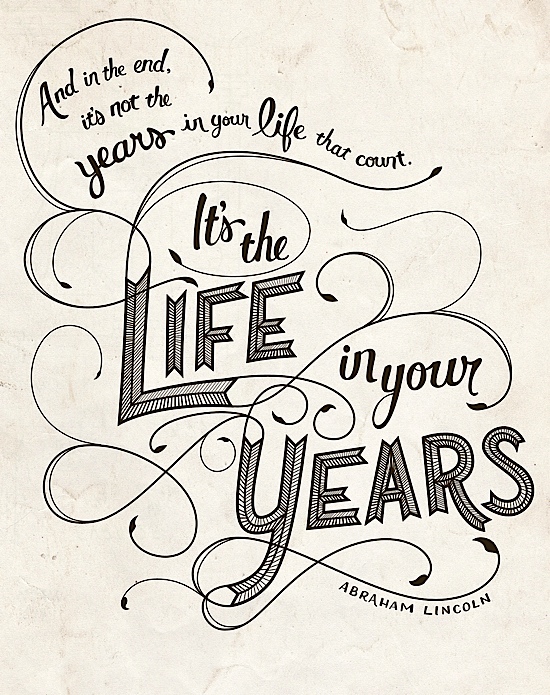 And in the end,
it's not the
years in your life that count.
It's
the
LIFE
in your
YEARS
ABRAHAM LINCOLN